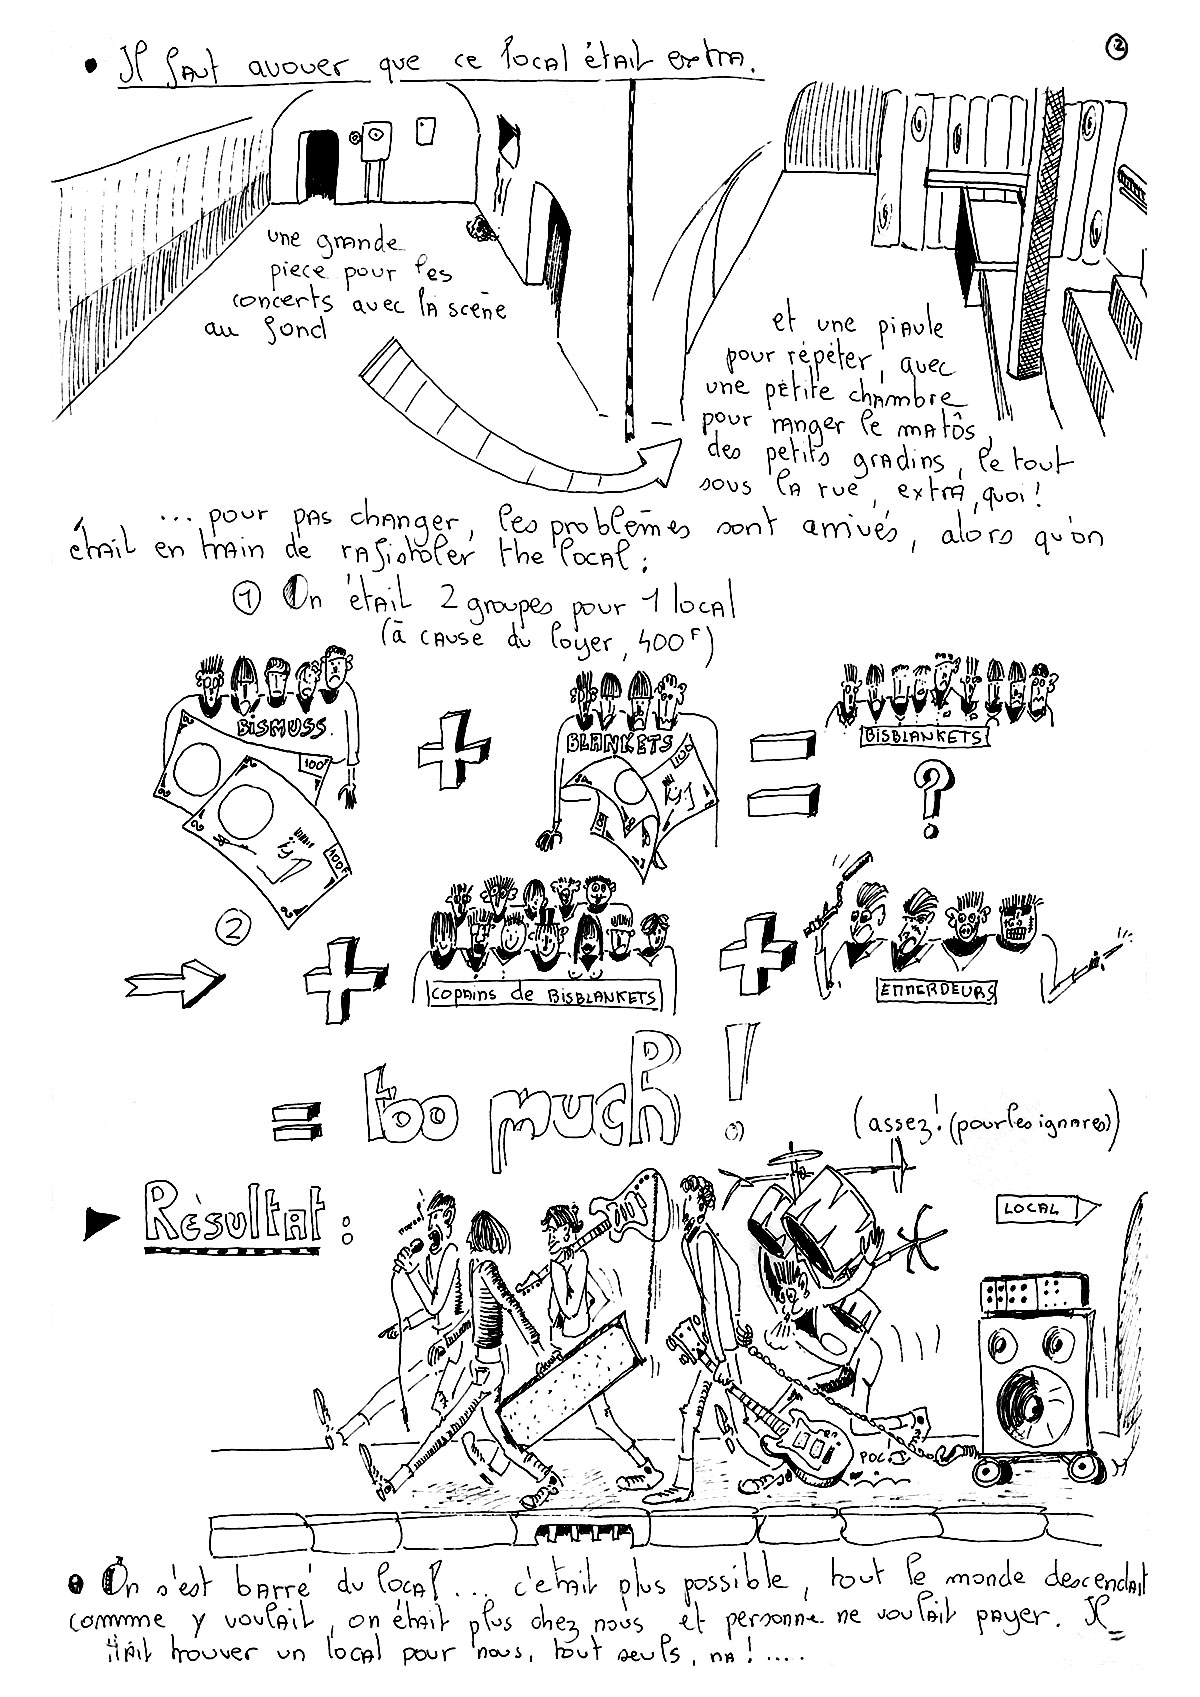 ②
• Il faut avouer que ce local était extra.
une grande
piece pour les
concerts avec la scène
au fond
et une piaule
pour répéter, avec
une petite chambre
pour ranger le matôs,
des petits gradins, le tout
sous la rue, extra, quoi!
... pour pas changer, les problèmes sont arrivés, alors qu'on
était en train de rafistoler the local:
① On était 2 groupes pour 1 local
(à cause du loyer, 400F)
BISMUSS.
100F
100F
+
BLANKETS
100
=
BISBLANKETS
?
②
+
copains de BISBLANKETS
+
EMMERDEURS
= too much!
(assez! (pour les ignares))
Résultat:
LOCAL
POC!
• On s'est barré du local... c'etait plus possible, tout le monde descendait
commme y voulait, on était plus chez nous et personne ne voulait payer. Il
fallait trouver un local pour nous, tout seuls, na!....